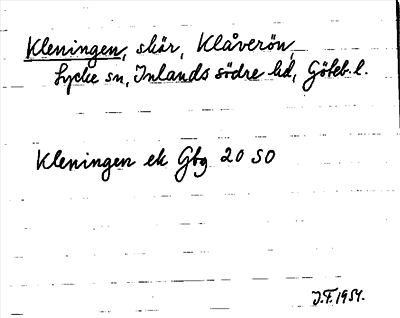 Kleningen, skär, Klåverön,
Lycke sn, Inlands södre hd, Göteb. l.
Kleningen ek Gbg 20 SO
J.F. 1954.